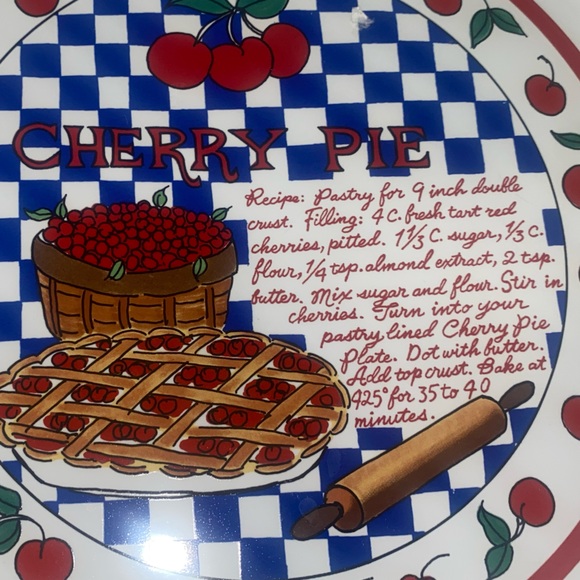 CHERRY PIE
Recipe: Pastry for 9 inch double
crust. Filling: 4 c. fresh tart red
cherries, pitted. 1 1/3 C. sugar, 1/3 C.
flour, 1/4 tsp. almond extract, 2 tsp.
butter. Mix sugar and flour. Stir in
cherries. Turn into your
pastry lined Cherry Pie
Plate. Dot with butter.
Add top crust. Bake at
425° for 35 to 40
minutes.